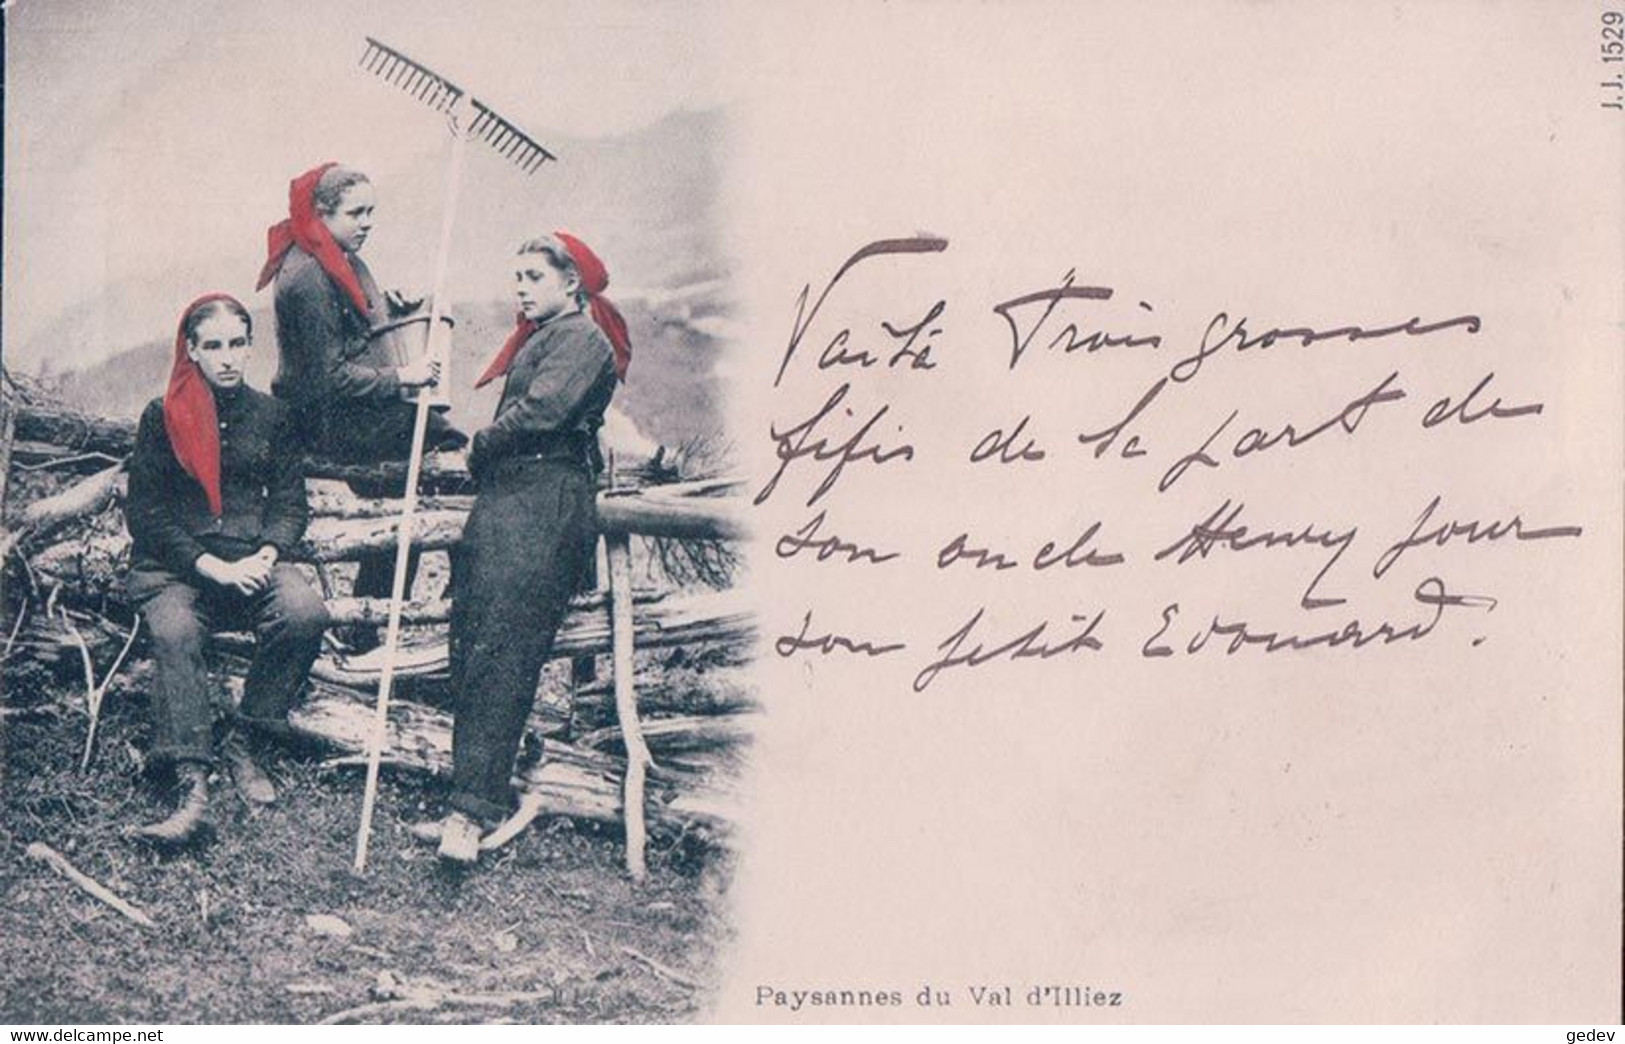 J.J. 1529
Voilà Trois grosses
fifis de la part de
son oncle Henry pour
son petit Edouard.
Paysannes du Val d'Illiez
www.delcampe.net
gedev